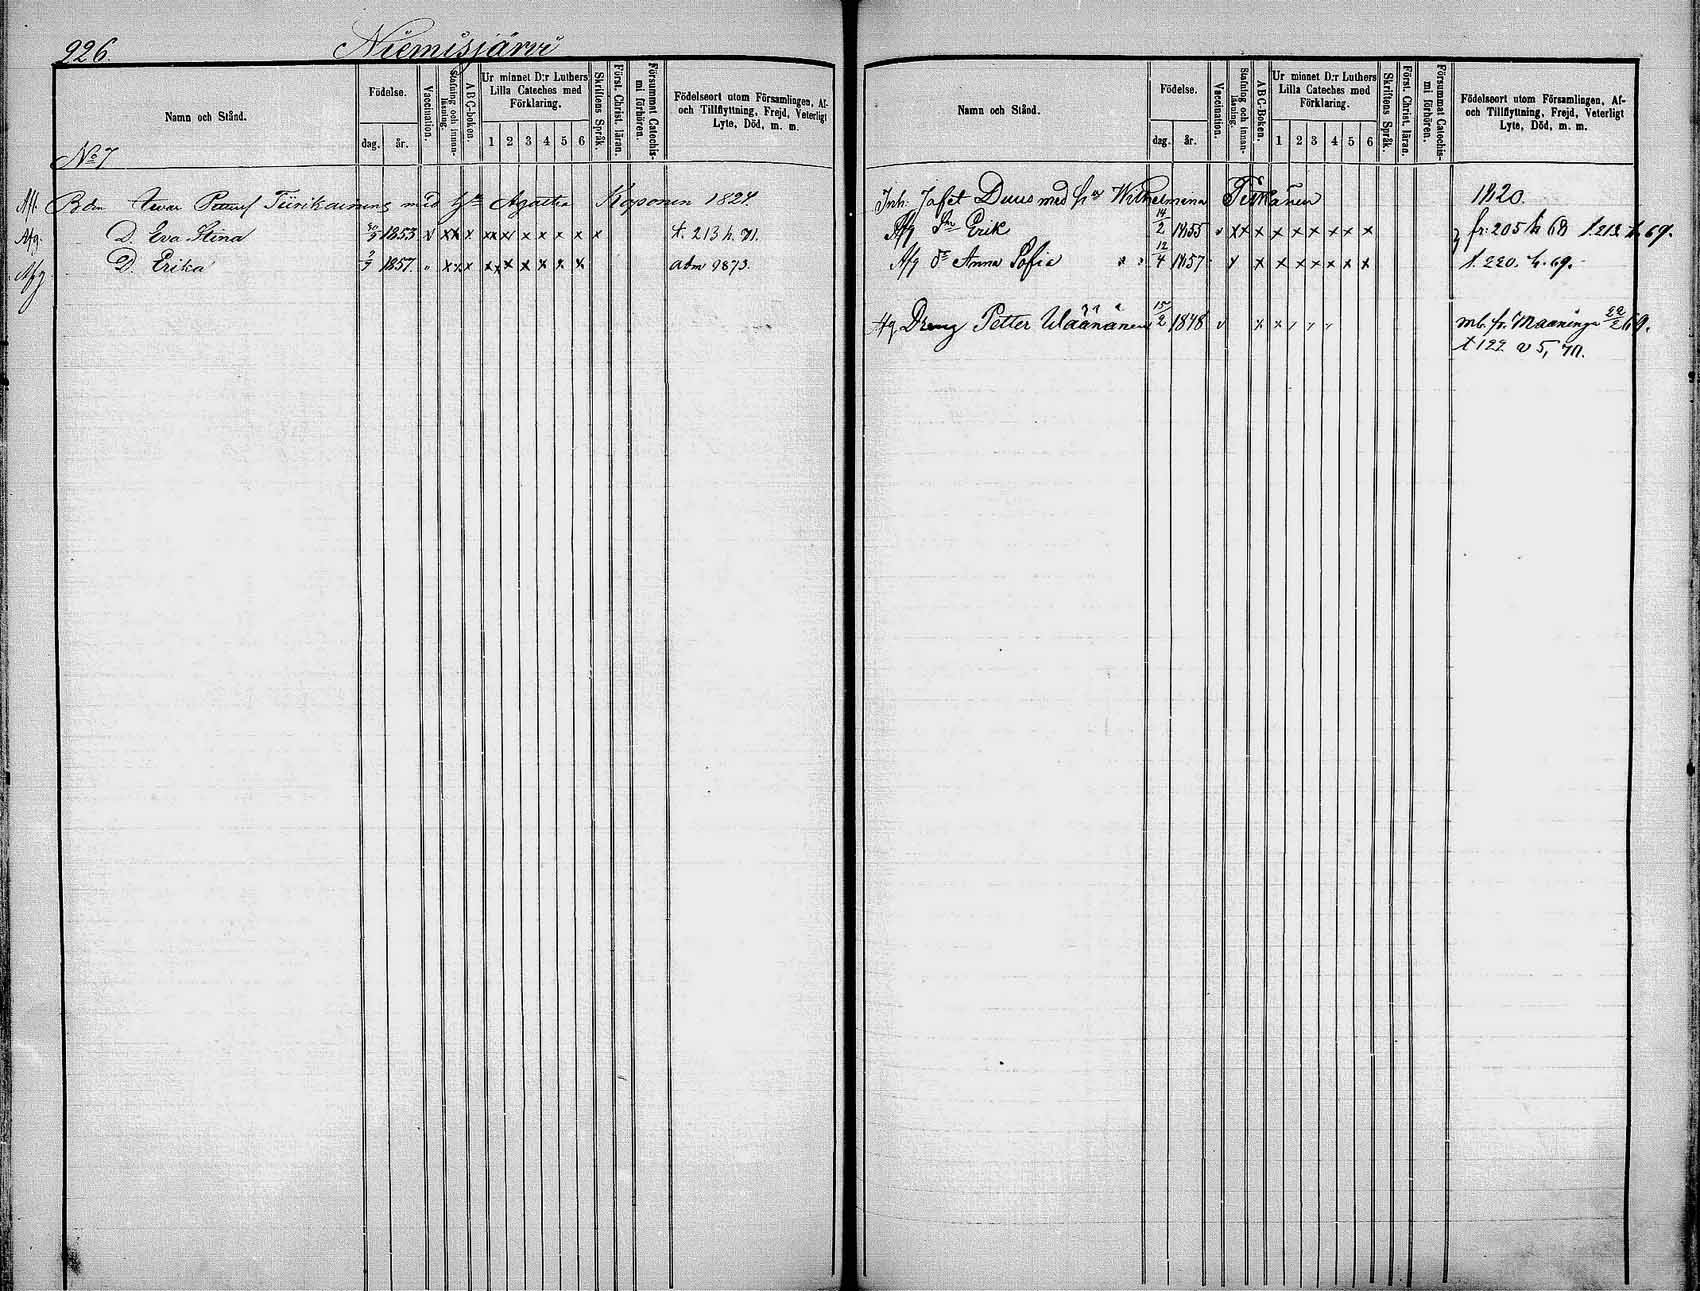 226.
Niemisjärvi
Namn och Stånd.
Födelse.
dag.
år.
Vaccination.
Stafning och innan-läsning.
A B C-boken.
Ur minnet D:r Luthers
Lilla Cateches med
Förklaring.
1 2 3 4 5 6
Skriftens Språk.
Först. Christ. läran.
Försummat Catechis-mi förhören.
Födelseort utom Församlingen, Af-
och Tillflyttning, Frejd, Veterligt
Lyte, Död, m. m.
No 7
Bdn Tiirikainens med Agatha Koponen 1824.
Afg. D. Eva Stina 1853 v x x x x x x x x x x t. 213 h. 71.
Afg D. Erika 2/9 1857 " x x x x x x x x x adm 1873.
Namn och Stånd.
Födelse.
dag.
år.
Vaccination.
Stafning och innan-läsning.
A B C-Boken.
Ur minnet D:r Luthers
Lilla Cateches med
Förklaring.
1 2 3 4 5 6
Skriftens Språk.
Först. Christ. läran.
Försummat Catechis-mi förhören.
Födelseort utom Församlingen, Af-
och Tillflyttning, Frejd, Veterligt
Lyte, Död, m. m.
Inh: Jafet Duus med hu Wilhelmina 1820.
Afg Sn Erik 14/2 1855 v x x x x x x x x x fr: 205 h 68 t. 213. h. 69.
Afg dr Anna Sofia 12/4 1857 x x x x x x x x t. 220. h. 69.
Afg. Dreng Petter Wäänänen 15/2 1848 v x x mb. fr. Maaninga 22/2 69.
t 122 v 5, 70.